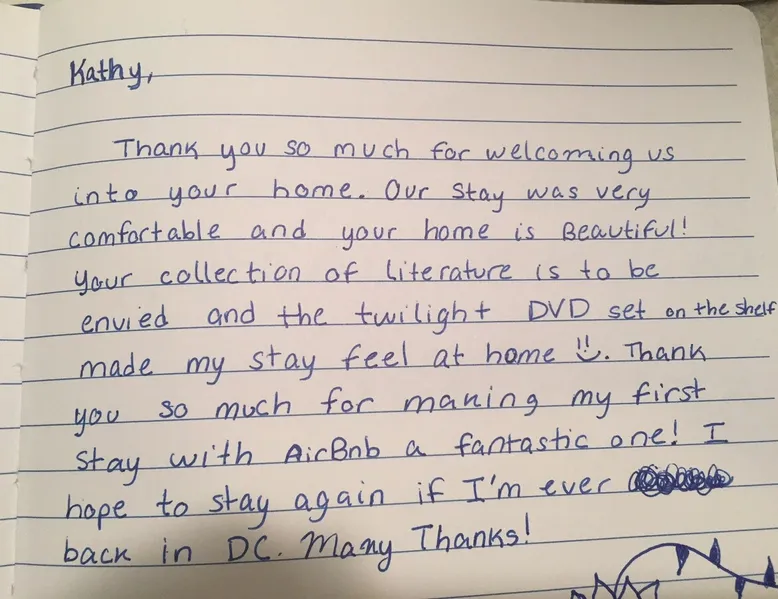 Kathy,
Thank you so much for welcoming us
into your home. Our stay was very
comfortable and your home is Beautiful!
Your collection of literature is to be
envied and the twilight DVD set on the shelf
made my stay feel at home. Thank
you so much for making my first
stay with AirBnb a fantastic one! I
hope to stay again if I'm ever
back in DC. Many Thanks!